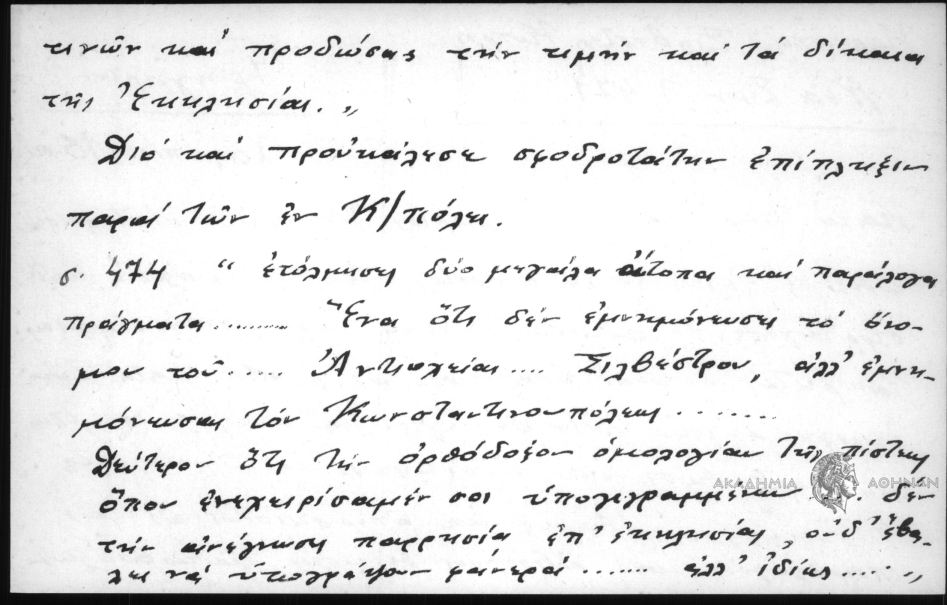 τινῶν καὶ προδώσας τὴν τιμὴν καὶ τὰ δίκαια
τῆς Ἐκκλησίας.„
Διὸ καὶ προὐκάλεσε σφοδροτάτην ἐπίπληξιν
παρὰ τῶν ἐν Κ/πόλει.
σ. 474 “ ἐτόλμησες δύο μεγάλα ἄτοπα καὶ παράλογα
πράγματα......... Ἕνα ὅτι δὲν ἐμνημόνευσες τὸ
τοῦ..... Ἀντιοχείας.... Σιλβέστρου, ἀλλ’ ἐμνη-
μόνευσες τὸν Κωνσταντινουπόλεως ........
Δεύτερον ὅτι τὴν ὀρθόδοξον ὁμολογίαν τῆς πίστεως
ὅπου ἐνεχειρίσαμέν σοι ὑπογεγραμμένην ... δὲν
τὴν ἀνέγνωσες παρρησίᾳ ἐπ’ ἐκκλησίας, οὐδ’ ἔβα-
λες νὰ ὑπογράψουν φανερὰ ....... ἀλλ’ ἰδίως..... „
ΑΚΑΔΗΜΙΑ ΑΘΗΝΩΝ